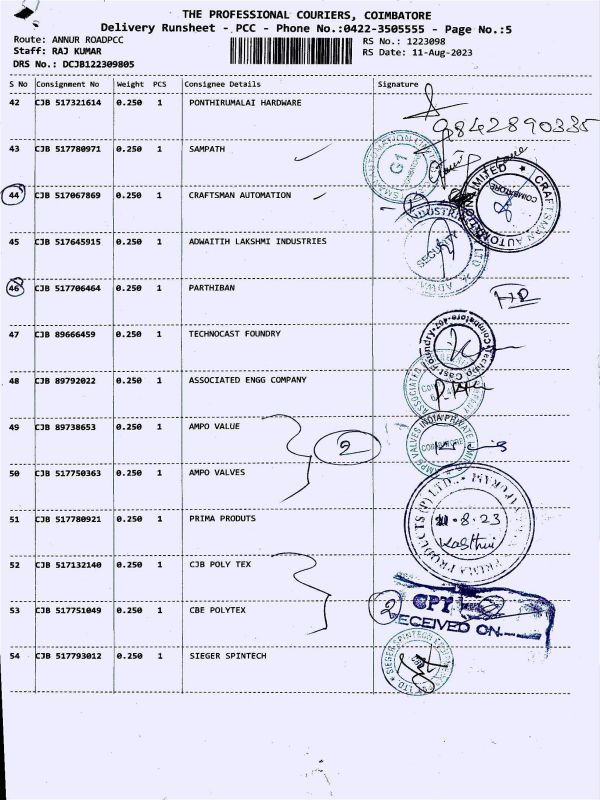 THE PROFESSIONAL COURIERS, COIMBATORE
Delivery Runsheet - PCC - Phone No.:0422-3505555 - Page No.:5
Route: ANNUR ROADPCC RS No.: 1223098
Staff: RAJ KUMAR RS Date: 11-Aug-2023
DRS No.: DCJB122309805
S No Consignment No Weight PCS Consignee Details Signature
42 CJB 517321614 0.250 1 PONTHIRUMALAI HARDWARE
9842890335
43 CJB 517780971 0.250 1 SAMPATH
G1
44 CJB 517067869 0.250 1 CRAFTSMAN AUTOMATION
COIMBATORE
45 CJB 517645915 0.250 1 ADWAITH LAKSHMI INDUSTRIES
SECURITY
46 CJB 517706464 0.250 1 PARTHIBAN
47 CJB 89666459 0.250 1 TECHNOCAST FOUNDRY
48 CJB 89792022 0.250 1 ASSOCIATED ENGG COMPANY
49 CJB 89738653 0.250 1 AMPO VALUE
2
AMPO VALVES INDIA PRIVATE LIMITED
50 CJB 517750363 0.250 1 AMPO VALVES
51 CJB 517780921 0.250 1 PRIMA PRODUTS
11.8.23
52 CJB 517132140 0.250 1 CJB POLY TEX
53 CJB 517751049 0.250 1 CBE POLYTEX
2
CPY
RECEIVED ON
54 CJB 517793012 0.250 1 SIEGER SPINTECH